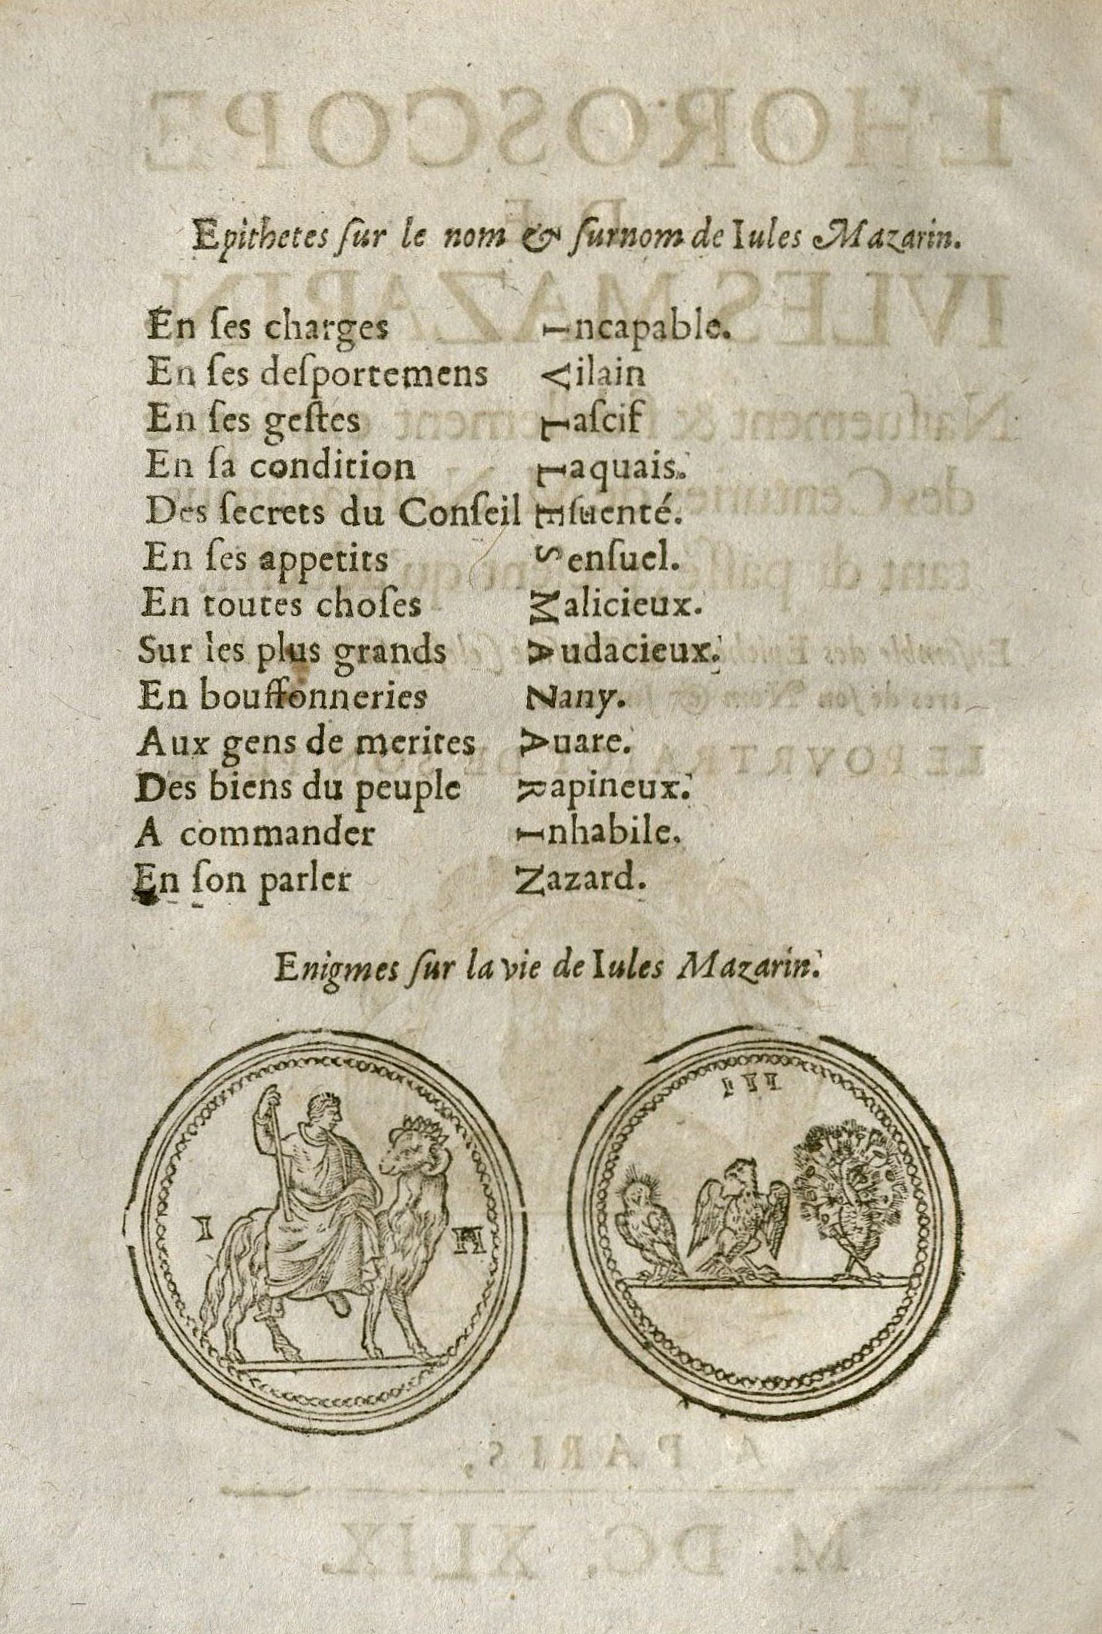 Epithetes ſur le nom & ſurnom de Iules Mazarin.
En ſes charges Incapable.
En ſes deſportemens Vilain
En ſes geſtes Laſcif
En ſa condition Laquais.
Des ſecrets du Conſeil Eſuenté.
En ſes appetits Senſuel.
En toutes choſes Malicieux.
Sur les plus grands Audacieux.
En bouffonneries Zany.
Aux gens de merites Auare.
Des biens du peuple Rapineux.
A commander Inhabile.
En ſon parler Nazard.
Enigmes ſur la vie de Iules Mazarin.
I II
III
L'HOROSCOPE
DE
IVLES MAZARIN
de Centurie
LE POVRTRA
A PARIS,
M. DC. XLIX.